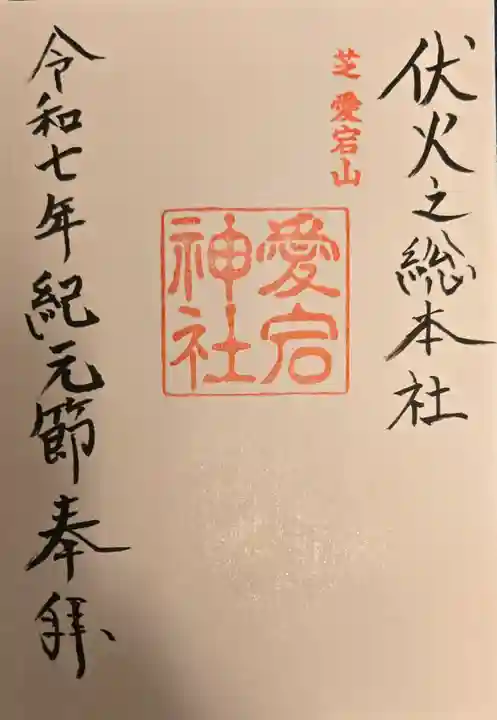 伏火之総本社
芝 愛宕山
愛宕
神社
令和七年紀元節奉拝